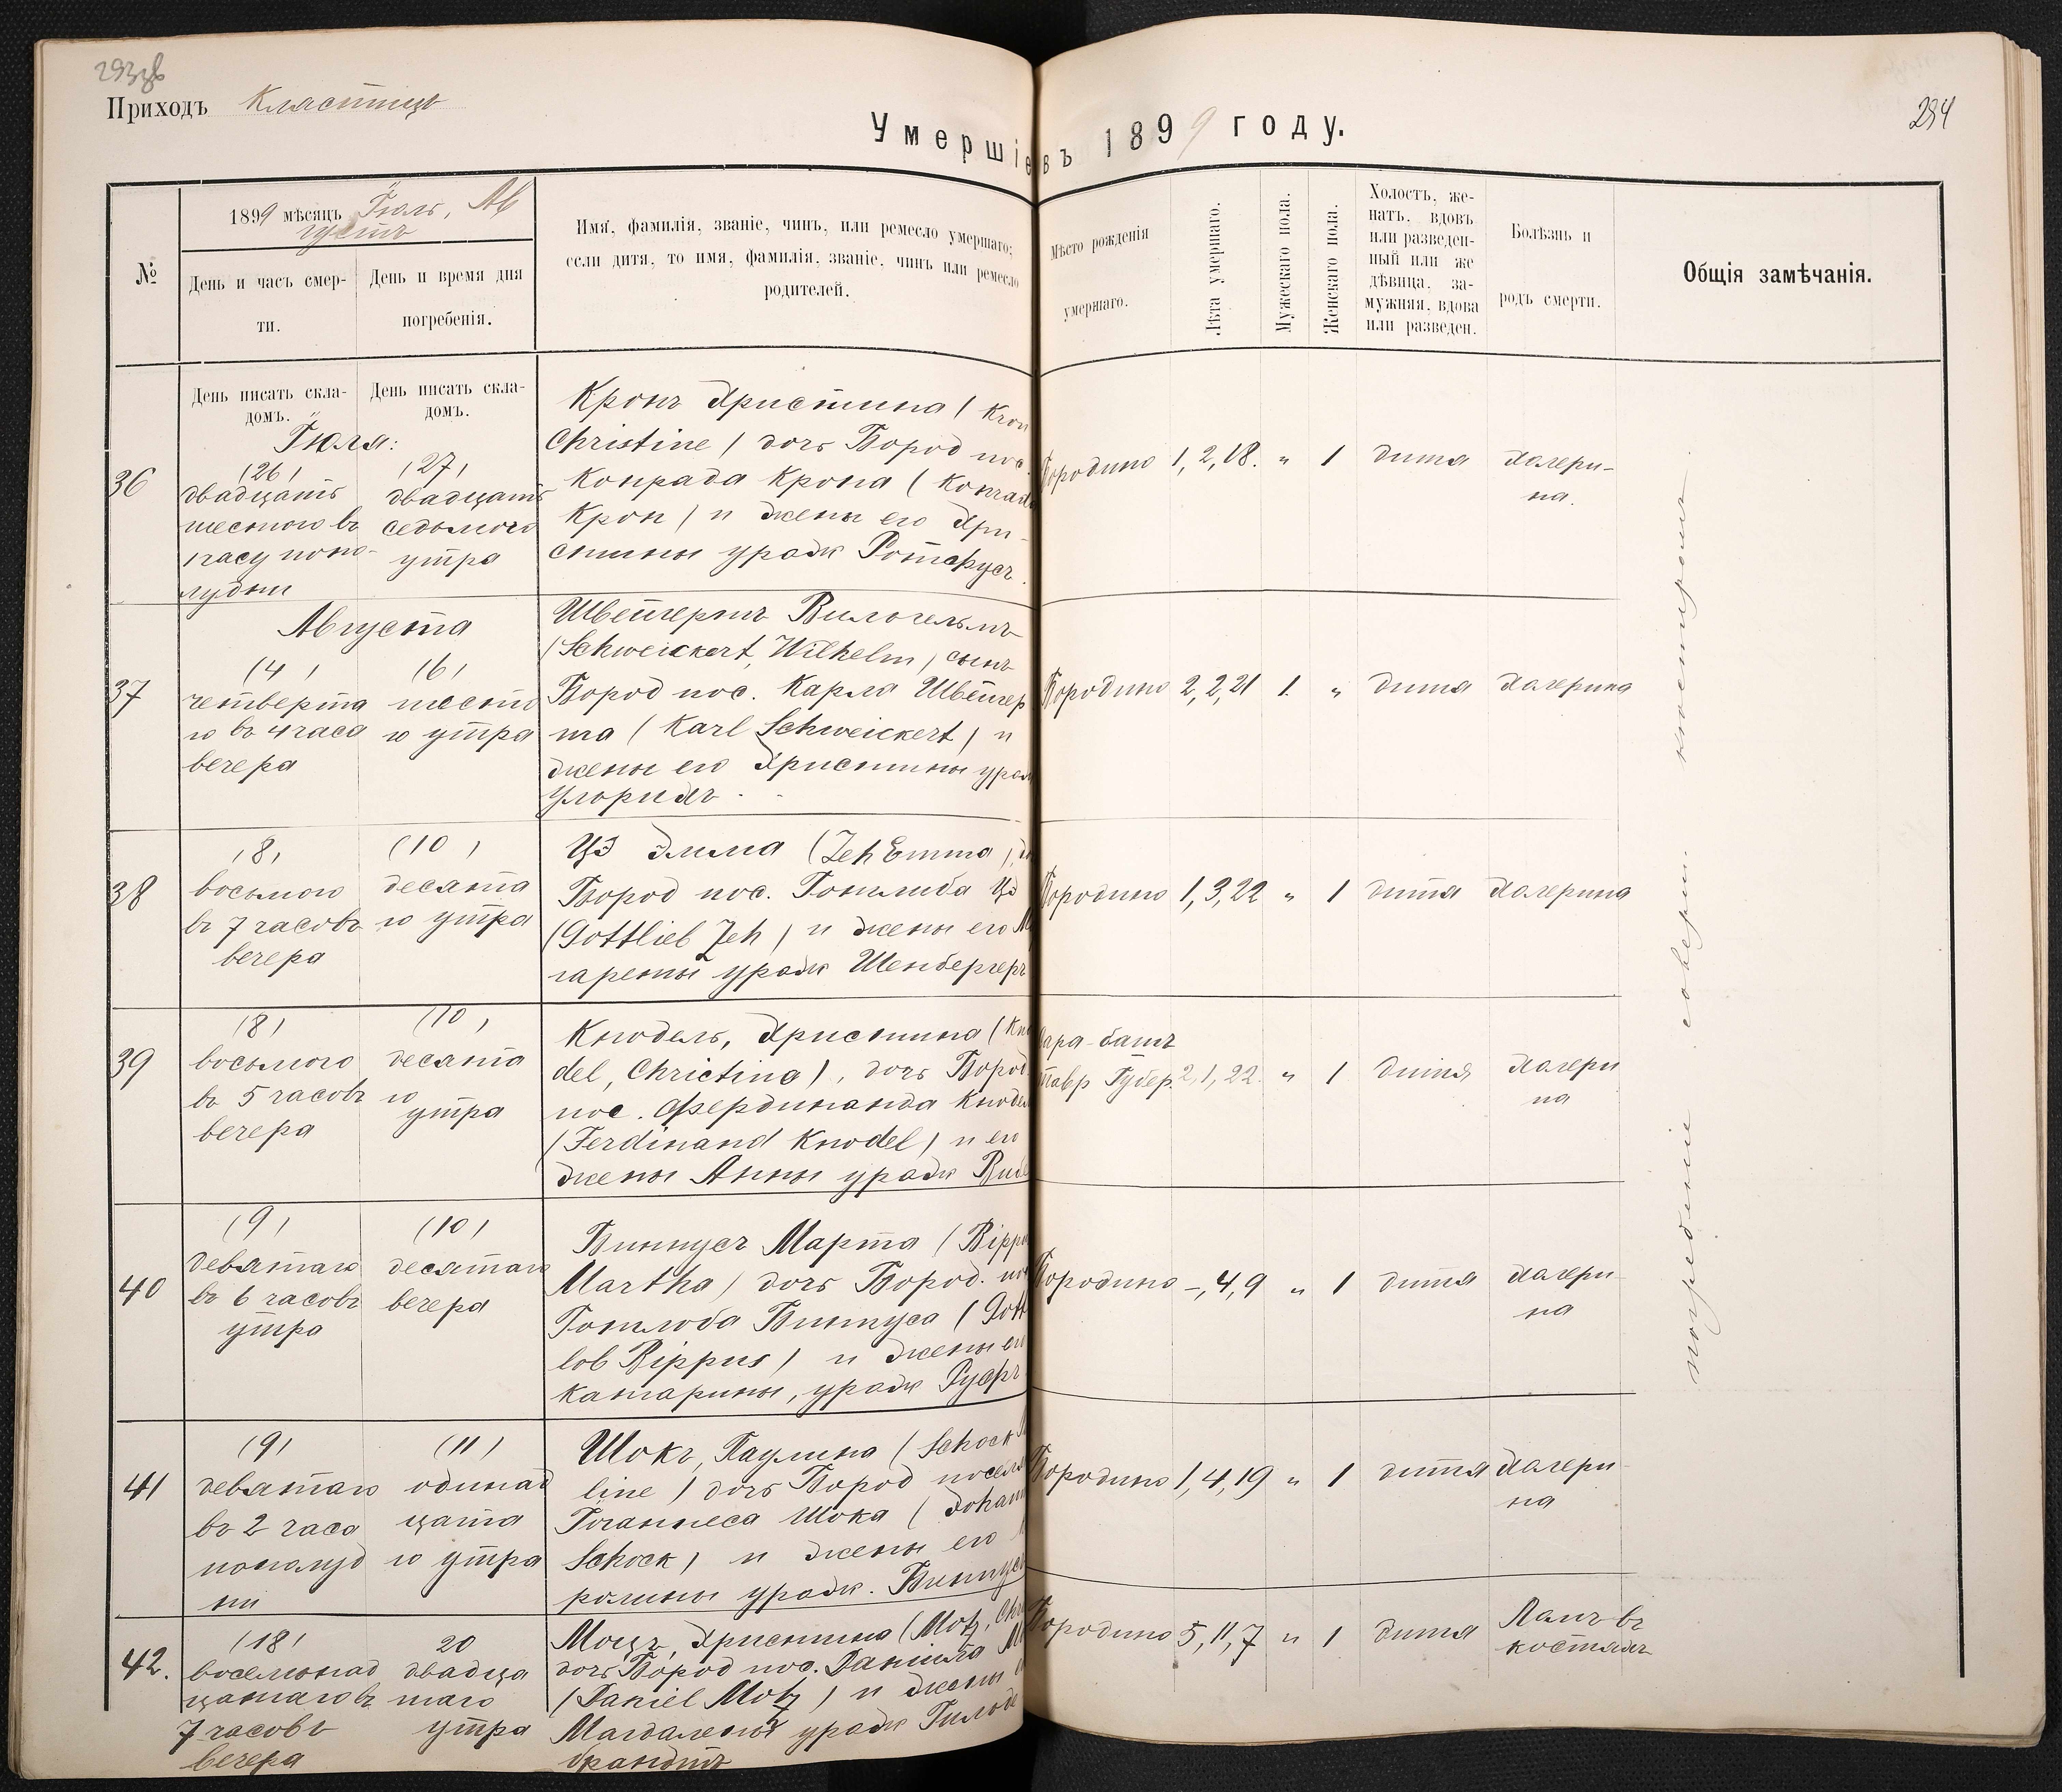 Приходъ Кляститцъ
Умершіе въ 1899 году.
294
№
1899 мѣсяцъ Іюль, Ав
густъ
День и часъ смер-
ти.
День и время дня
погребенія.
Имя, фамилія, званіе, чинъ, или ремесло умершаго;
если дитя, то имя, фамилія, званіе, чинъ или ремесло
родителей.
Мѣсто рожденія
умершаго.
Лѣта умершаго.
Мужескаго пола.
Женскаго пола.
Холостъ, же-
натъ, вдовъ
или разведен-
ный или же
дѣвица, за-
мужняя, вдова
или разведен.
Болѣзнь и
родъ смерти.
Общія замѣчанія.
День писать скла-
домъ.
День писать скла-
домъ.
Іюля:
36
(26)
двадцать
шестого въ
1 часу попо-
лудни
(27)
двадцать
седьмого
утра
Кронъ Христина (Kron
Christine) дочь Бород пос.
Конрада Крона (Konrad
Kron) и жены его Хри-
стины урожд Ротфусъ.
Бородино 1, 2, 18. „ 1 дитя Холери-
на.
Августа
37
(4)
четверта
го въ 4 часа
вечера
(6)
шесто
го утра
Швейгертъ Вильгельмъ
(Schweickert, Wilhelm) сынъ
Бород пос. Карла Швейгер
та (Karl Schweickert) и
жены его Христины урож
Ульрихъ
Бородино 2, 2, 21 1. „ дитя Холерина
38
(8)
восьмого
въ 7 часовъ
вечера
(10)
десята
го утра
Цэ Эмма (Zeh Emma), д
Бород пос. Готлиба Цэ
(Gottlieb Zeh) и жены его М
гареты урожд Шенбергеръ
Бородино 1, 3, 22 „ 1 дитя Холерина
39
(8)
восьмого
въ 5 часовъ
вечера
(10)
десята
го
утра
Кнодель, Христина (Kno
del, Christina), дочь Бород
пос. Фердинанда Кноде
(Ferdinand Knodel) и его
жены Анны урожд
башъ
Тавр Губер. 2, 1, 22. „ 1 дитя Холери
на
40
(9)
девятаго
въ 6 часовъ
утра
(10)
десятаго
вечера
Биппусъ Марта (Bippu
Martha) дочь Бород. по
Готлоба Биппуса (Gott
lob Bippus) и жены его
Катарины, урожд Руфъ
Бородино -, 4, 9 „ 1 дитя Холери-
на
41
(9)
девятаго
въ 2 часа
пополуд
ни
(11)
одинад
цата
го утра
Шокъ, Паулина (Schock
line) дочь Бород посел
Іоганнеса Шока (Johann
Schock) и жены его
ролины урожд. Биппусъ
Бородино 1, 4, 19 „ 1 дитя Холери-
на
42.
(18)
восемнад
цатаго въ
7 часовъ
вечера
20
двадца
таго
утра
Моцъ, Христина (Motz, Chri
дочь Бород пос. Даніила М
(Daniel Motz) и жены
Магдалены урожд Гильде
брандтъ
Бородино 5, 11, 7 „ 1 дитя Ломъ въ
костяхъ
погребеніе соверш.